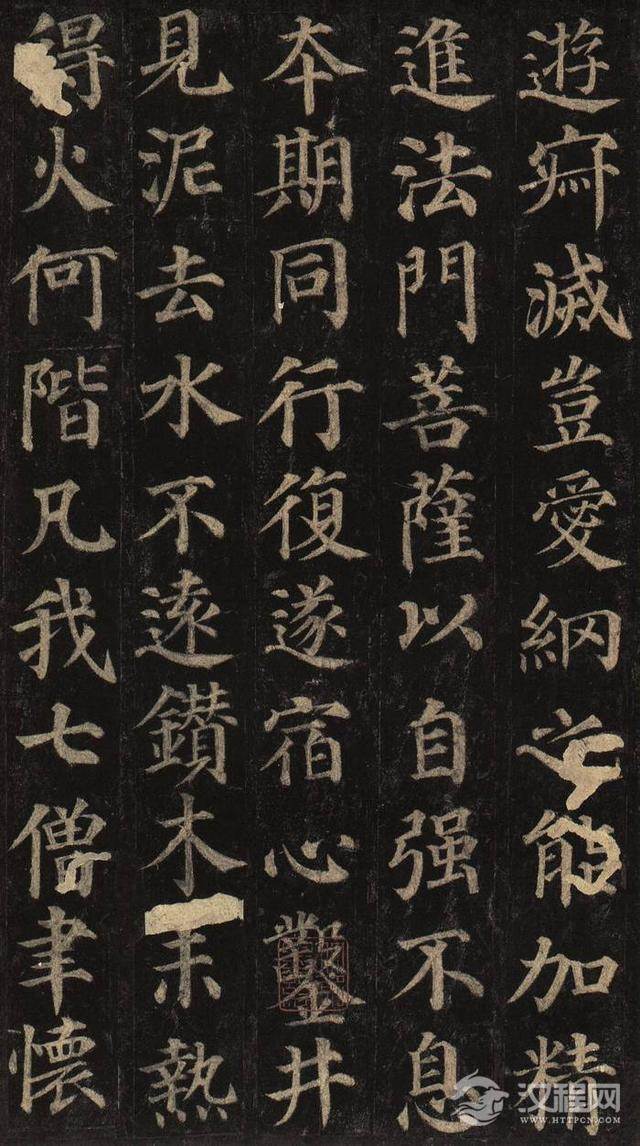 遊寂滅豈愛網之能加精
進法門菩薩以自强不息
本期同行復遂宿心鑿井
見泥去水不遠鑽木未熱
得火何階凡我七僧聿懷
汉程网
WWW.HTTPCN.COM